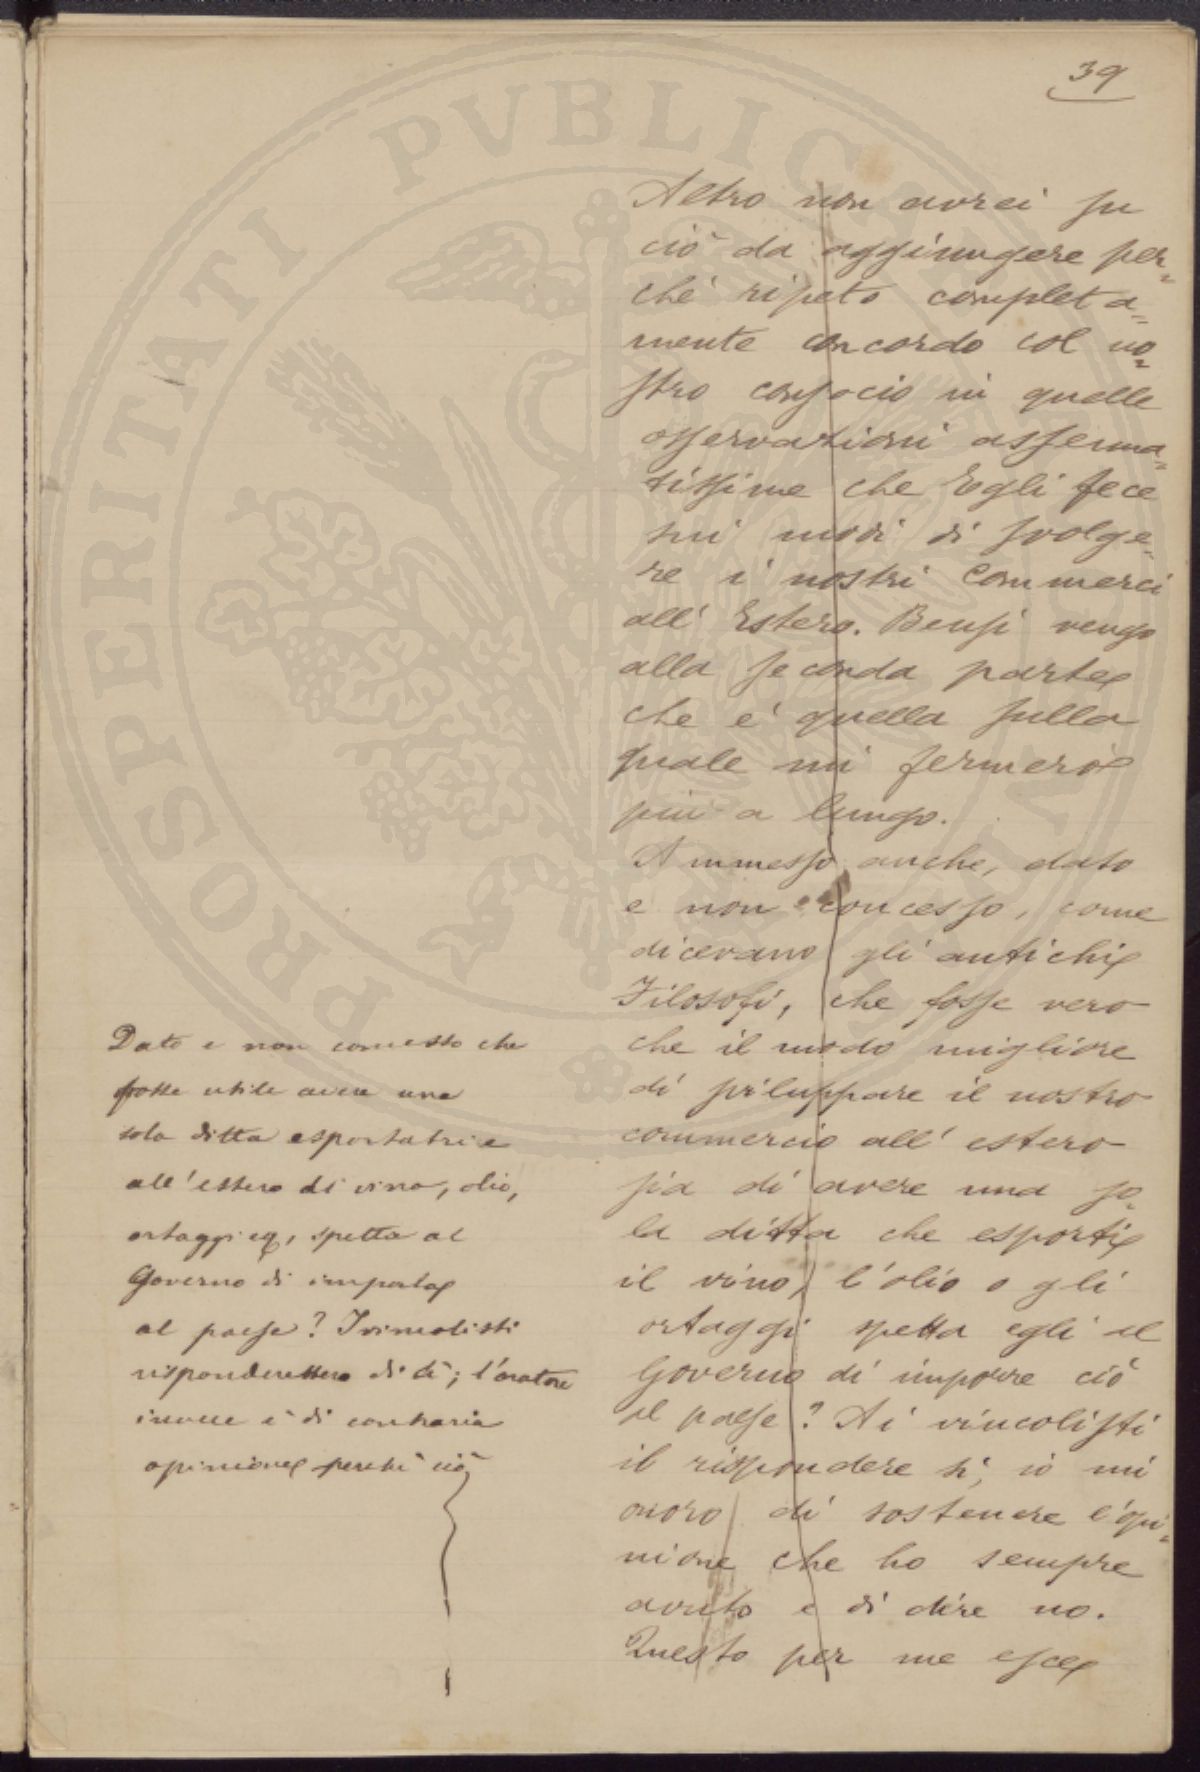 39
Altro non avrei su
ciò da aggiungere per=
chè ripeto completa=
mente concordo col no=
stro consocio in quelle
osservazioni assenna=
tissime che Egli fece
sui modi di svolge=
re i nostri commerci
all' Estero. Bensì vengo
alla seconda parte
che è quella sulla
quale mi fermerò
più a lungo.
Ammesso anche, dato
e non concesso, come
dicevano gli antichi
Filosofi, che fosse vero
che il modo migliore
di sviluppare il nostro
commercio all' estero
sia di avere una so=
la ditta che esporti
il vino, l'olio o gli
ortaggi spetta egli al
Governo di imporre ciò
al paese? Ai vincolisti
il rispondere sì, io mi
onoro di sostenere l'opi=
nione che ho sempre
avuto e di dire no.
Questo per me esce
Dato e non concesso che
fosse utile avere una
sola ditta esportatrice
all'estero di vino, olio,
ortaggi, spetta al
Governo di imporla
al paese? I vincolisti
risponderebbero di sì; l'oratore
invece è di contraria
opinione perchè ciò
PROSPERITATI PVBLICAE